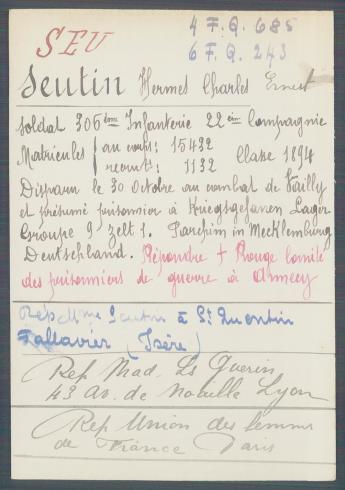 SEU
4 F.Q. 685
6 F.Q. 243
Seutin Hermet Charles Ernest
Soldat 306ème Infanterie 22ème Compagnie
Matricules { au corps: 15432
recrut: 1132 Classe 1894
Disparu le 30 Octobre au combat de Vailly
et présumé prisonnier à Kriegsgefanen Lager
Groupe 9 Zelt 1. Parchim in Mecklemburg
Deutschland. Répondre + Rouge Comité
des prisonniers de guerre à Annecy
Rep Mme Seutin à St Quentin
Fallavier (Isère)
Rep Mad. Le Guerin
43 av. de Noaille Lyon
Rep Union des femmes
de France Paris